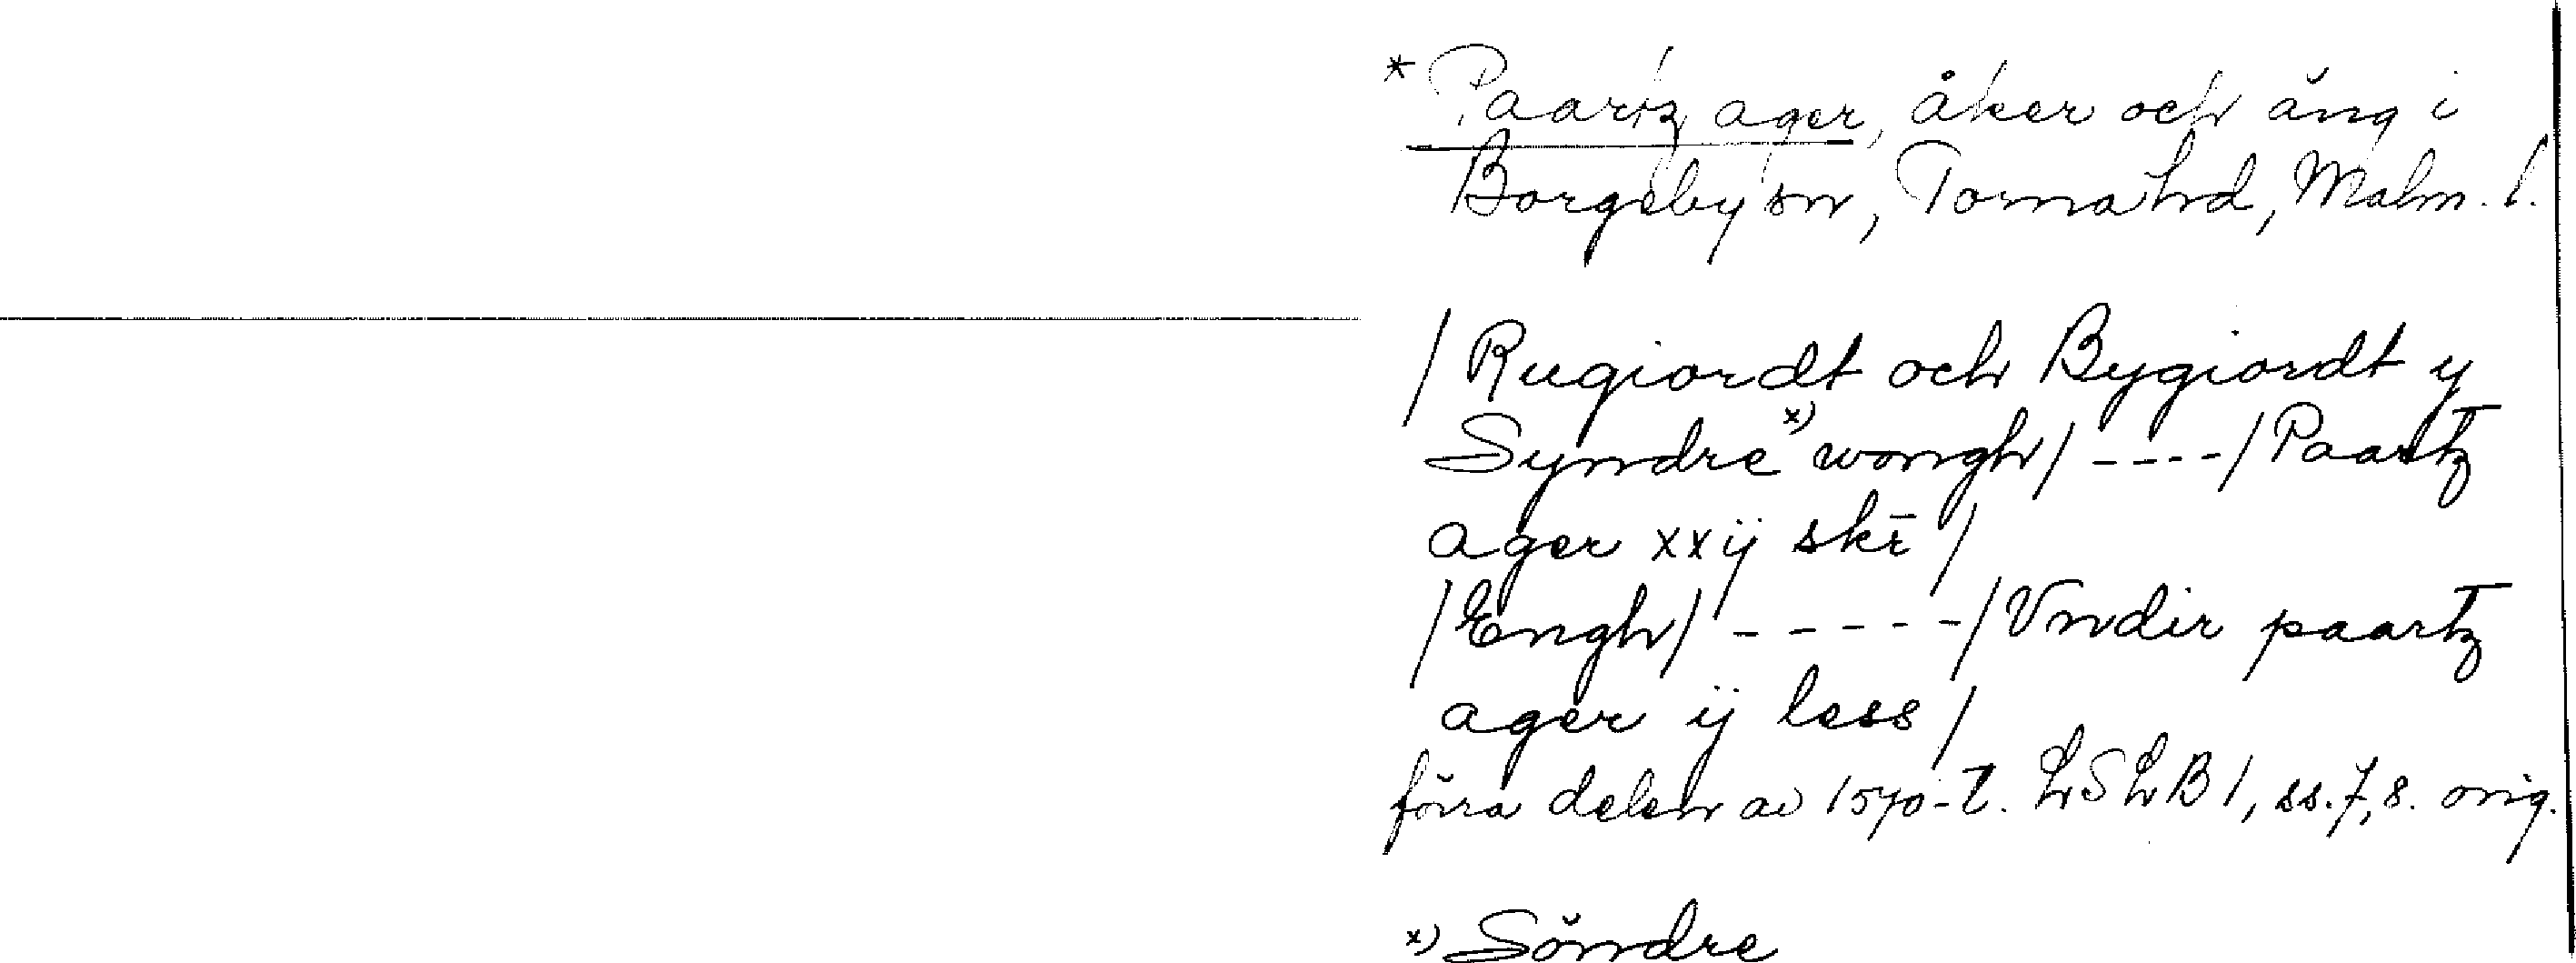 * Paartz ager, åker och äng i
Borgeby sn, Torna hd, Malm. l.
/ Rugiordt och Bygiordt y
Syndre x) wongh / ---- / Paartz
ager xxij skr̄ /
/ Engh / ----- / Vndir paartz
ager ij less /
förra delen av 1570-t. LSLB 1, ss. 7, 8. orig.
x) Söndre